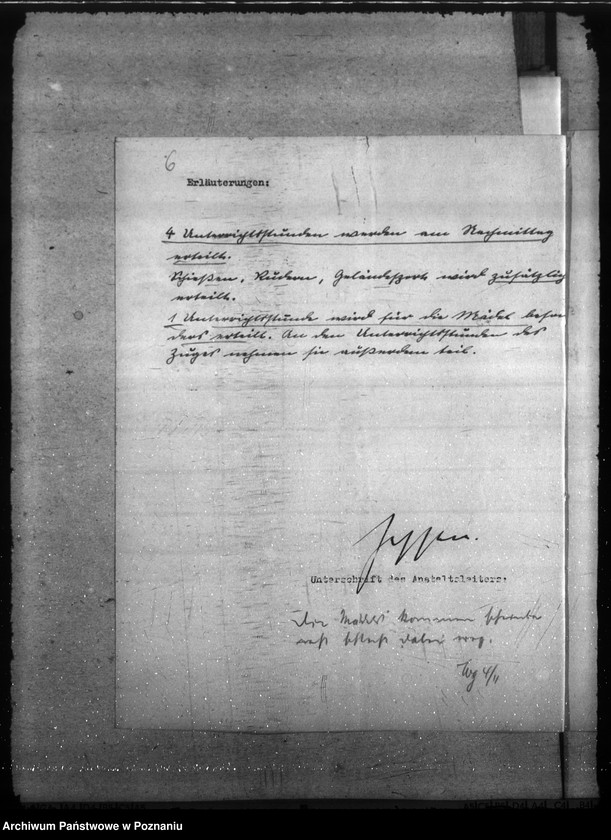 6
Erläuterungen:
4 Unterrichtsstunden werden am Nachmittag
erteilt.
Schießen, Rudern, Geländesport wird zusätzlich
erteilt.
1 Unterrichtsstunde wird für die Mädel beson
ders erteilt. An den Unterrichtsstunden des
Zuges nehmen sie außerdem teil.
Jessen.
Unterschrift des Anstaltsleiters:
Die kommen
dabei weg.
4/11
Archiwum Państwowe w Poznaniu